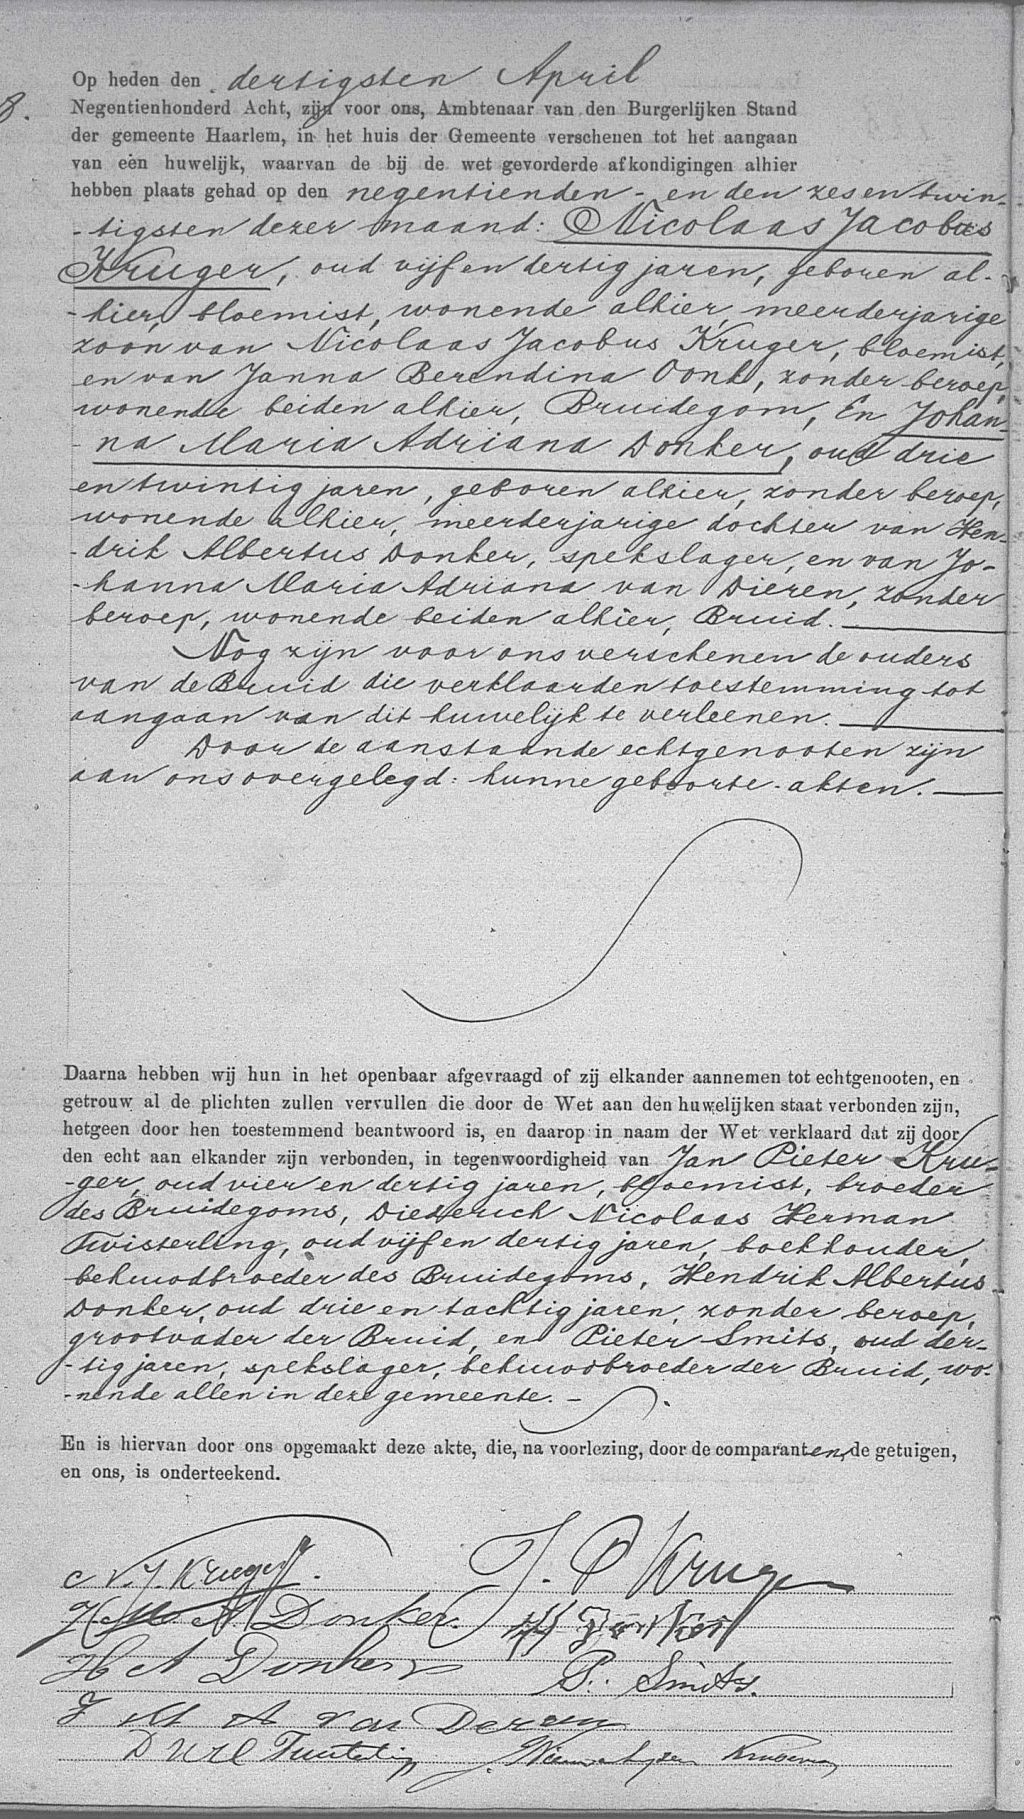 Op heden den dertigsten April
8.
Negentienhonderd Acht, zijn voor ons, Ambtenaar van den Burgerlijken Stand
der gemeente Haarlem, in het huis der Gemeente verschenen tot het aangaan
van een huwelijk, waarvan de bij de wet gevorderde afkondigingen alhier
hebben plaats gehad op den negentienden - en den zesentwin-
-tigsten dezer maand: Nicolaas Jacobus
Kruger, oud vijf en dertig jaren, geboren al-
-hier, bloemist, wonende alhier, meerderjarige
zoon van Nicolaas Jacobus Kruger, bloemist,
en van Janna Berendina Oonk, zonder beroep,
wonende beiden alhier, Bruidegom, En Johan-
na Maria Adriana Donker, oud drie
en twintig jaren, geboren alhier, zonder beroep,
wonende alhier, meerderjarige dochter van Hen-
-drik Albertus Donker, spekslager, en van Jo-
-hanna Maria Adriana van Dieren, zonder
beroep, wonende beiden alhier, Bruid.
Nog zijn voor ons verschenen de ouders
van de Bruid die verklaarden toestemming tot
aangaan van dit huwelijk te verleenen.
Door de aanstaande echtgenooten zijn
aan ons overgelegd: hunne geboorte-akten.
Daarna hebben wij hun in het openbaar afgevraagd of zij elkander aannemen tot echtgenooten, en
getrouw al de plichten zullen vervullen die door de Wet aan den huwelijken staat verbonden zijn,
hetgeen door hen toestemmend beantwoord is, en daarop in naam der Wet verklaard dat zij door
den echt aan elkander zijn verbonden, in tegenwoordigheid van Jan Pieter Kru-
-ger, oud vier en dertig jaren, bloemist, broeder
des Bruidegoms, Diederich Nicolaas Herman
Twisterling, oud vijf en dertig jaren, boekhouder,
behuwdbroeder des Bruidegoms, Hendrik Albertus
Donker, oud drie en tachtig jaren, zonder beroep,
grootvader der Bruid, en Pieter Smits, oud der-
-tig jaren, spekslager, behuwdbroeder der Bruid, wo-
-nende allen in deze gemeente. -
En is hiervan door ons opgemaakt deze akte, die, na voorlezing, door de comparanten, de getuigen,
en ons, is onderteekend.
N. J. Kruger. J. P Kruger
A Donker. Donker
H A Donker P. Smits.
J M A van Deren
D N H